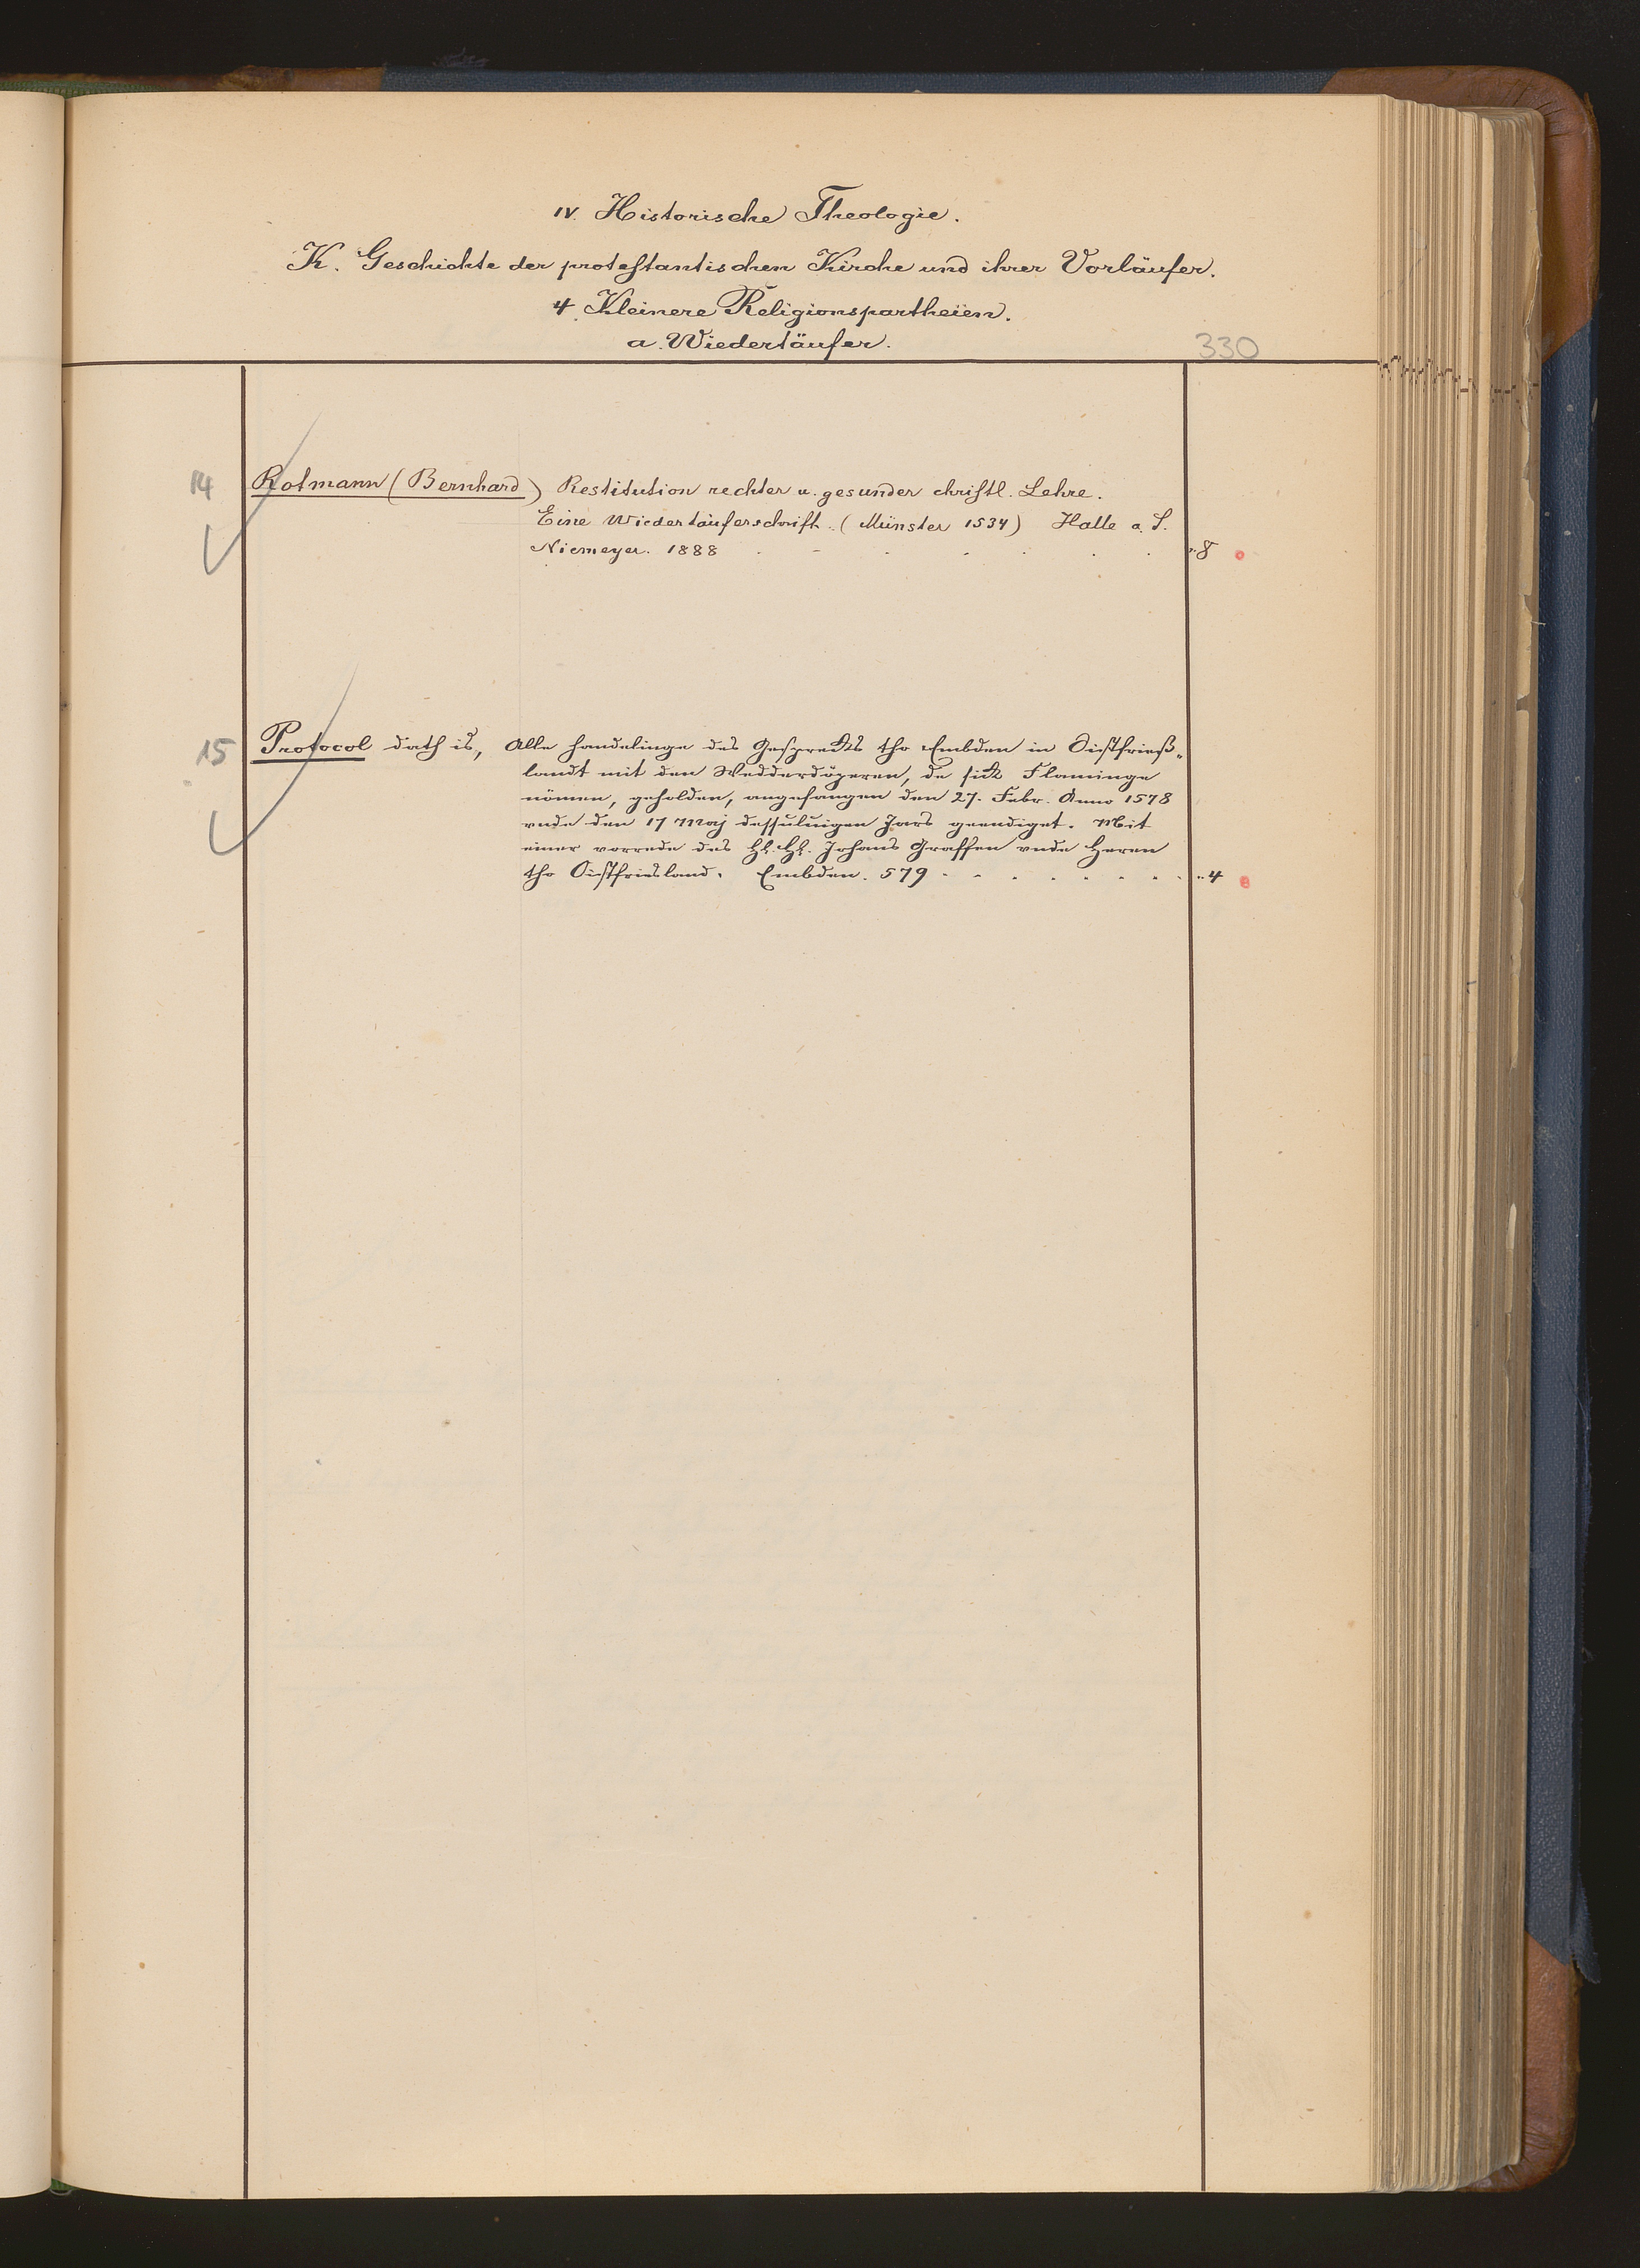 IV. Historische Theologie.
K. Geschichte der protestantischen Kirche und ihrer Vorläufer.
4. Kleinere Religionspartheien.
a. Wiedertäufer.
330
14 Rotmann (Bernhard) Restitution rechter u. gesunder christl. Lehre.
Eine Wiedertäuferschrift. (Münster 1534) Halle a. S.
Niemeyer. 1888 . - . . . . . "8
15 Protocol dath is, Alle handelinge des Gesprecks tho Embden in Oistfrieß-
landt mit den Wedderdöperen, de sick Flaminge
nömen, geholden, angefangen den 27. Febr. Anno 1578
vnde den 17 Maj dessuluigen Jars geendiget. Mit
einer vorrede des Hl. Hl. Johans Graffen vnde Heren
tho Oistfriesland. Embden. 579 . . . . . . . . "4